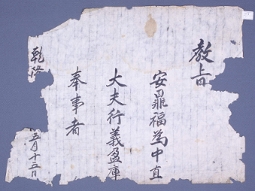 教旨
安鼎福為中直
大夫行義盈庫
奉事者
乾隆
五月十五日